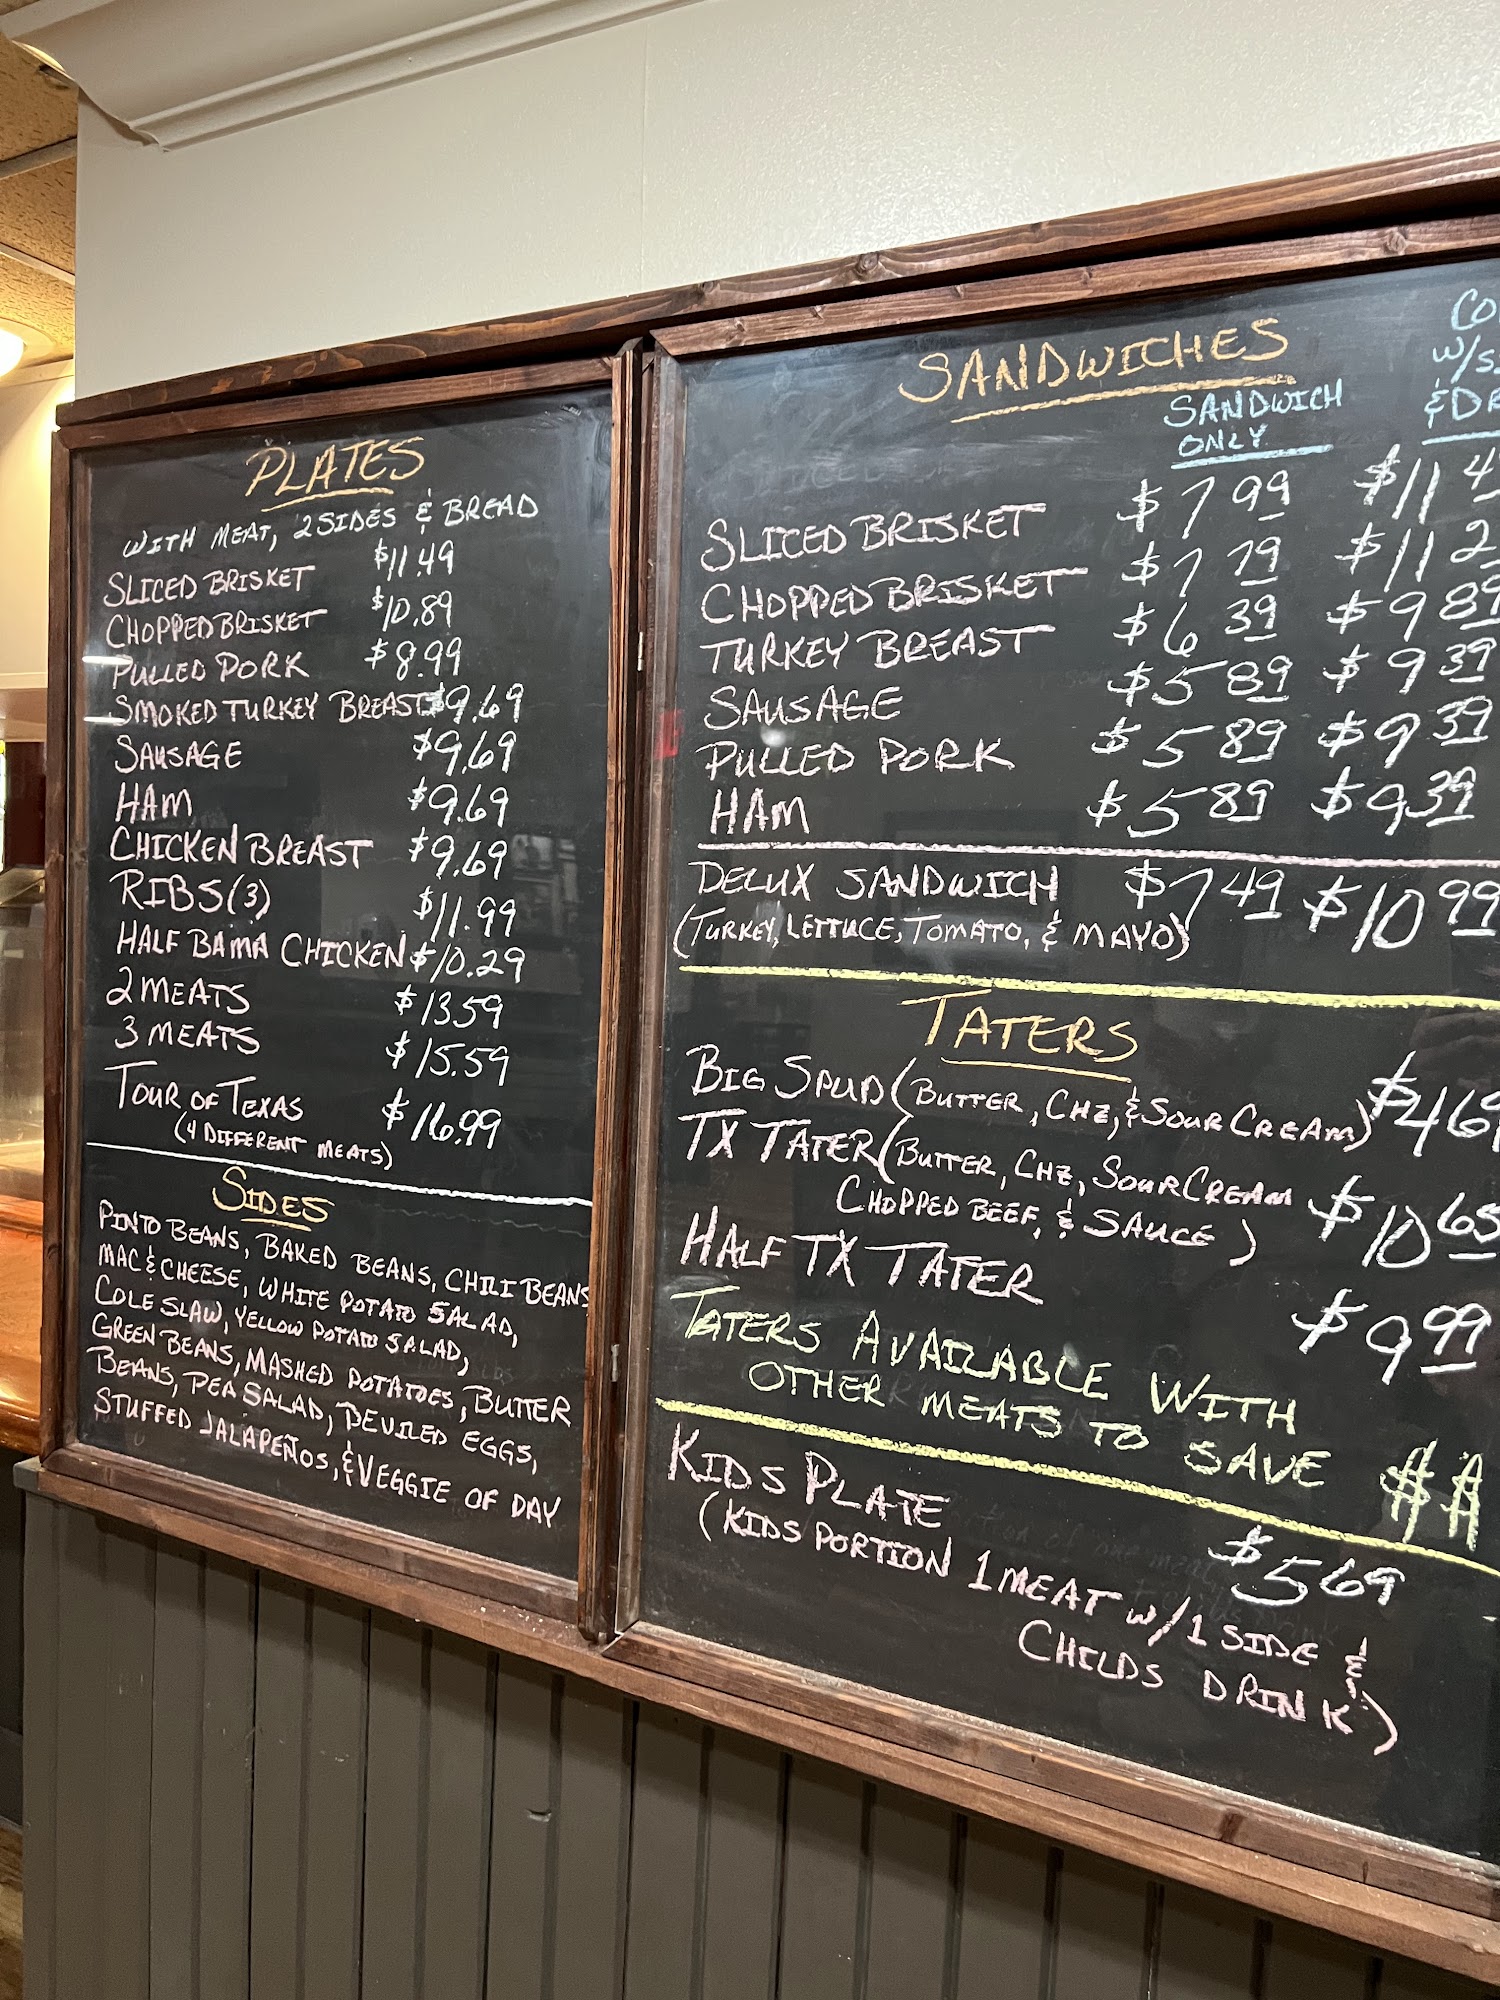 PLATES
WITH MEAT, 2 SIDES & BREAD
SLICED BRISKET $11.49
CHOPPED BRISKET $10.89
PULLED PORK $8.99
SMOKED TURKEY BREAST $9.69
SAUSAGE $9.69
HAM $9.69
CHICKEN BREAST $9.69
RIBS (3) $11.99
HALF BAMA CHICKEN $10.29
2 MEATS $13.59
3 MEATS $15.59
TOUR OF TEXAS $16.99
(4 DIFFERENT MEATS)
SIDES
PINTO BEANS, BAKED BEANS, CHILI BEANS
MAC & CHEESE, WHITE POTATO SALAD,
COLE SLAW, YELLOW POTATO SALAD,
GREEN BEANS, MASHED POTATOES, BUTTER
BEANS, PEA SALAD, DEVILED EGGS,
STUFFED JALAPEÑOS, & VEGGIE OF DAY
SANDWICHES
SANDWICH
ONLY
SLICED BRISKET $7.99
CHOPPED BRISKET $7.79
TURKEY BREAST $6.39 $9.89
SAUSAGE $5.89 $9.39
PULLED PORK $5.89 $9.39
HAM $5.89 $9.39
DELUX SANDWICH $7.49 $10.99
(TURKEY, LETTUCE, TOMATO, & MAYO)
TATERS
BIG SPUD (BUTTER, CHZ, & SOUR CREAM) $4.69
TX TATER (BUTTER, CHZ, SOUR CREAM
CHOPPED BEEF, & SAUCE) $10.65
HALF TX TATER $9.99
TATERS AVAILABLE WITH
OTHER MEATS TO SAVE $$
KIDS PLATE $5.69
(KIDS PORTION 1 MEAT W/1 SIDE &
CHILDS DRINK)